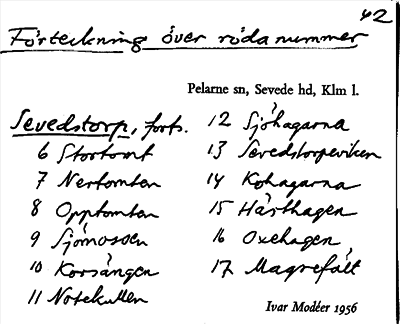 42
Förteckning över röda nummer
Pelarne sn, Sevede hd, Klm l.
Sevedstorp, forts.
6 Stortomt
7 Nertomten
8 Opptomten
9 Sjömossen
10 Korsängen
11 Notekullen
12 Sjöhagarna
13 Sevedstorpeviken
14 Kohagarna
15 Hästhagen
16 Oxehagen
17 Magrefält
Ivar Modéer 1956